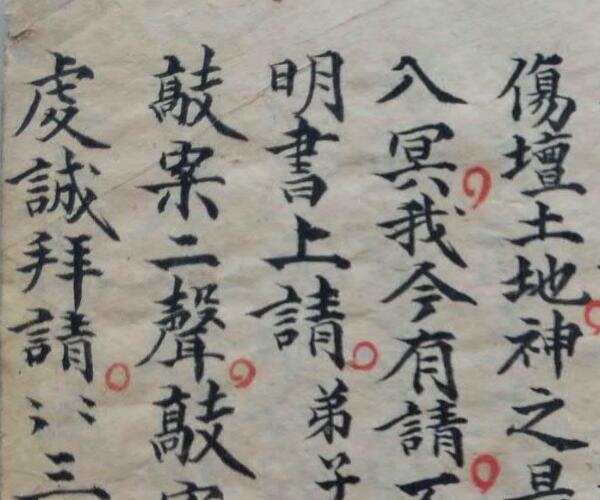 傷壇土地神之
八冥我今有請
明書上請弟子
敲案二聲敲
虔誠拜請〻〻三